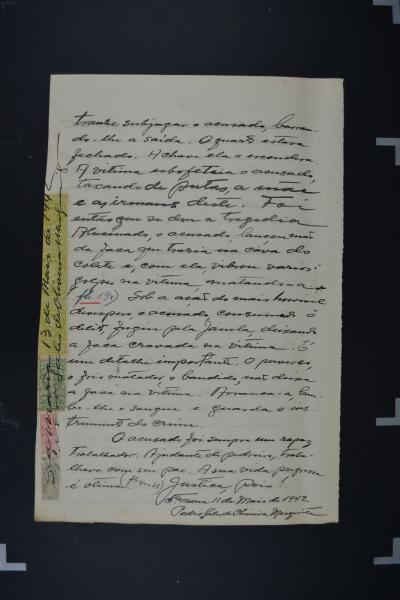 trouxe subjugar o acusado, barran-
do-lhe a saída. O quarto estava
fechado. A chave ela a escondera.
A vitima esbofeteia o acusado,
taxando de putas, a mãe
e as irmans deste. Foi
então que se deu a tragedia
Alucinado, o acusado, lançou mão
da faca que trazia na cava do
colete e, com ela, vibrou varios
golpes na vitima, matando-a
(fls. 19v) Sob a ação do mais horrivel
desespero, o acusado, consumado o
delito, fugiu pela janela, deixando
a faca cravada na vitima. É
um detalhe importante. O perverso,
o frio matador, o bandido, não deixa
a faca na vitima. Arranca-a, lam-
be-lhe o sangue e guarda o ins-
trumento do crime.
O acusado foi sempre um rapaz
trabalhador. Ajudante de pedreiro, traba-
lhava com seu pae. A sua vida pregressa
é otima. Justiça, pois
11 de Maio de 1942
Pedro de Oliveira
13 de Maio de 194